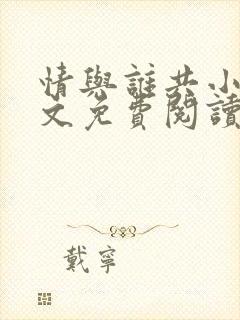 情與誰共小
文免費閱讀
戴寧